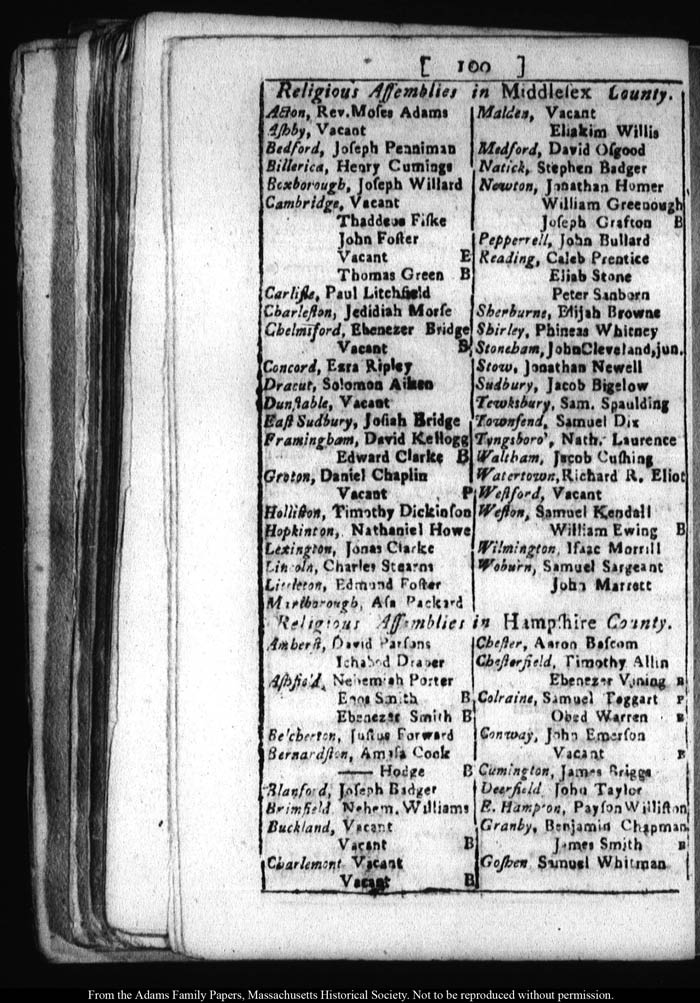 [ 100 ]
Religious Aſſemblies in Middleſex County.
Acton, Rev. Moſes Adams
Aſhby, Vacant
Bedford, Joſeph Penniman
Billerica, Henry Cumings
Boxborough, Joſeph Willard
Cambridge, Vacant
Thaddeus Fiſke
John Foſter
Vacant E
Thomas Green B
Carliſle, Paul Litchfield
Charleſton, Jedidiah Morſe
Chelmsford, Ebenezer Bridge
Vacant B
Concord, Ezra Ripley
Dracut, Solomon Aiken
Dunſtable, Vacant
Eaſt Sudbury, Joſiah Bridge
Framingham, David Kellogg
Edward Clarke B
Groton, Daniel Chaplin
Vacant P
Holliſton, Timothy Dickinſon
Hopkinton, Nathaniel Howe
Lexington, Jonas Clarke
Lincoln, Charles Stearns
Littleton, Edmund Foſter
Marlborough, Aſa Packard
Malden, Vacant
Eliakim Willis
Medford, David Oſgood
Natick, Stephen Badger
Newton, Jonathan Homer
William Greenough
Joſeph Grafton B
Pepperrell, John Bullard
Reading, Caleb Prentice
Eliab Stone
Peter Sanborn
Sherburne, Elijah Browne
Shirley, Phineas Whitney
Stoneham, John Cleveland, jun.
Stow, Jonathan Newell
Sudbury, Jacob Bigelow
Tewksbury, Sam. Spaulding
Townſend, Samuel Dix
Tyngsboro', Nath. Laurence
Waltham, Jacob Cuſhing
Watertown, Richard R. Eliot
Weſtford, Vacant
Weſton, Samuel Kendall
William Ewing B
Wilmington, Iſaac Morrill
Woburn, Samuel Sargeant
John Marrett
Religious Aſſemblies in Hampſhire County.
Amherſt, David Parſons
Ichabod Draper
Aſhfield, Nehemiah Porter
Enos Smith B
Ebenezer Smith B
Belcherton, Juſtus Forward
Bernardſton, Amaſa Cook
—— Hodge B
Blanford, Joſeph Badger
Brimfield Nehem. Williams
Buckland, Vacant
Vacant B
Charlemont Vacant
Vacant B
Cheſter, Aaron Baſcom
Cheſterfield, Timothy Allin
Ebenezer Vining B
Colraine, Samuel Taggart P
Obed Warren B
Conway, John Emerſon
Vacant B
Cumington, James Briggs
Deerfield John Taylor
E. Hampton, Payſon Williſton
Granby, Benjamin Chapman
James Smith B
Goſhen Samuel Whitman
From the Adams Family Papers, Massachusetts Historical Society. Not to be reproduced without permission.